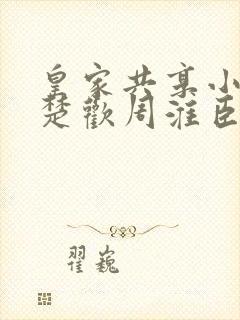 皇家共享小
楚歡周淮臣
翟巍